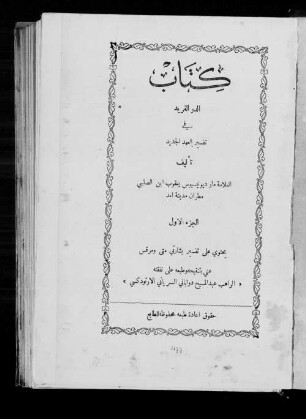 كتاب
الدر الفريد
في
تفسير العهد الجديد
تأليف
العلامة مار ديونيسيوس يعقوب ابن الصليبي
مطران مدينة امد
الجزء الاول
يحتوي على تفسير بشارتي متى ومرقس
عني بتنقيحه وطبعه على نفقته
« الراهب عبد المسيح دولباني السرياني الارثوذكسي »
حقوق اعادة طبعه محفوظة للطابع